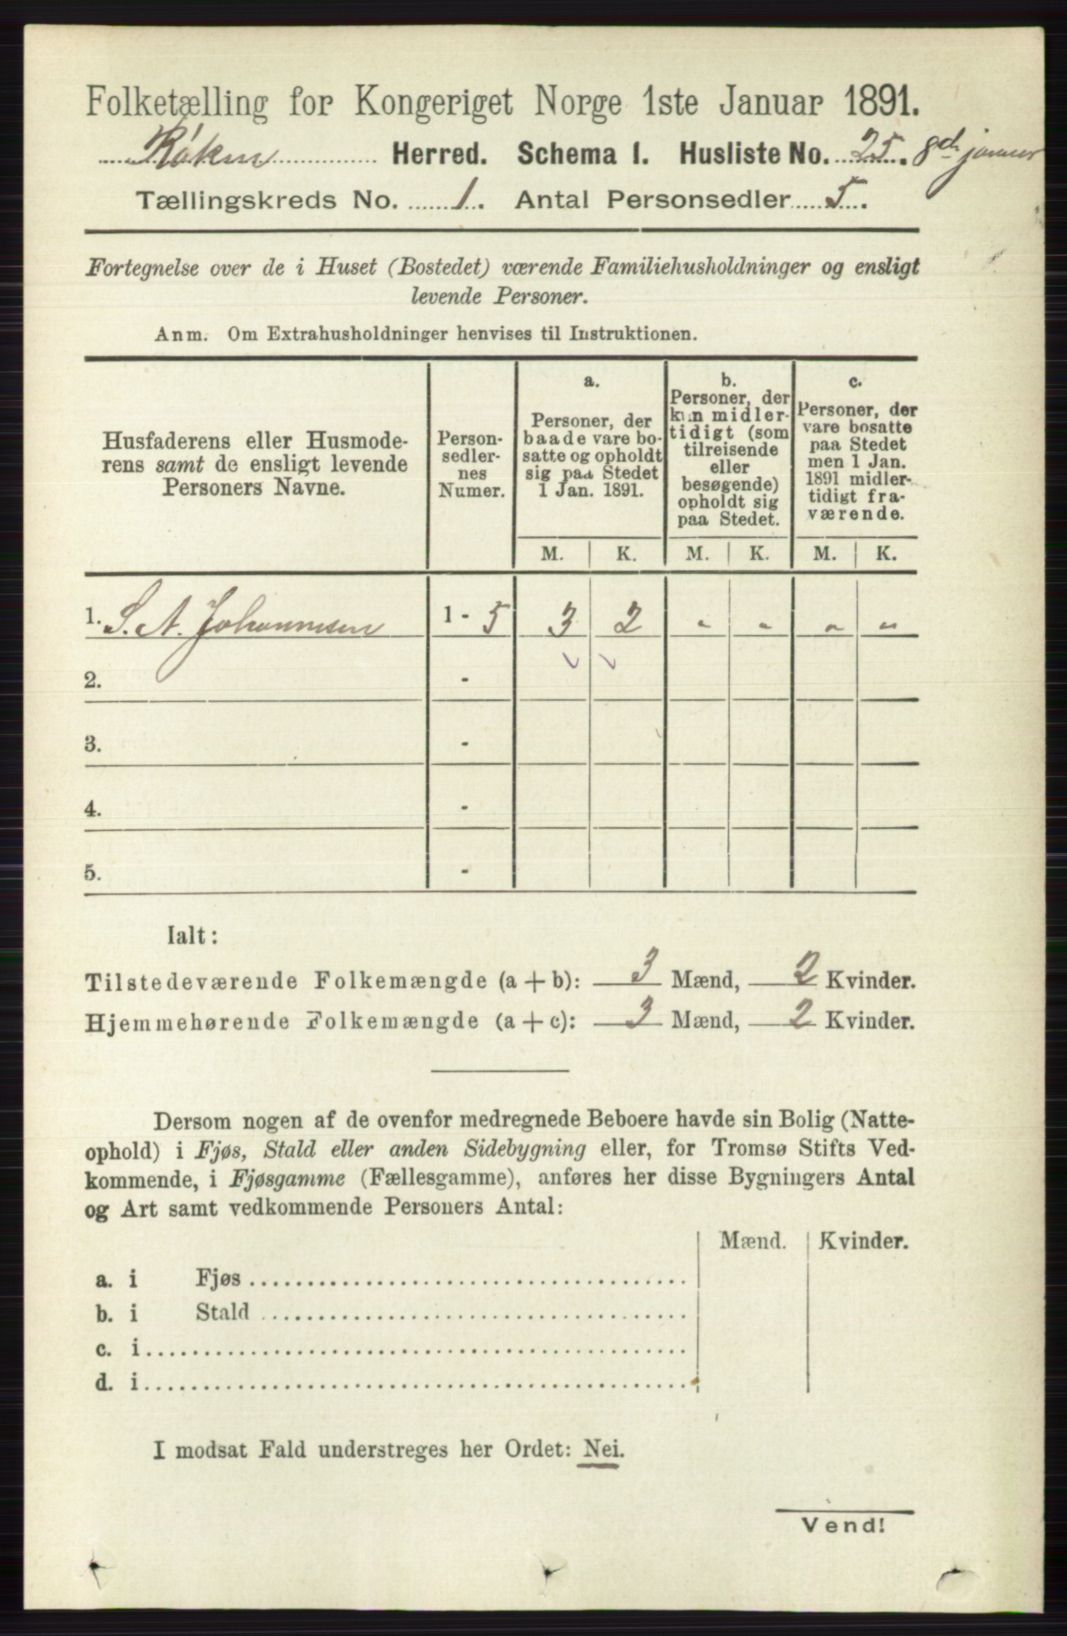 Folketælling for Kongeriget Norge 1ste Januar 1891.
Røken Herred. Schema 1. Husliste No. 25. 8de januar
Tællingskreds No. 1. Antal Personsedler 5.
Fortegnelse over de i Huset (Bostedet) værende Familiehusholdninger og ensligt
levende Personer.
Anm. Om Extrahusholdninger henvises til Instruktionen.
Husfaderens eller Husmode-
rens samt de ensligt levende
Personers Navne.
Person-
sedler-
nes
Numer.
a.
Personer, der
baade vare bo-
satte og opholdt
sig paa Stedet
1 Jan. 1891.
b.
Personer, der
kun midler-
tidigt (som
tilreisende
eller
besøgende)
opholdt sig
paa Stedet.
c.
Personer, der
vare bosatte
paa Stedet
men 1 Jan.
1891 midler-
tidigt fra-
værende.
M. K. M. K. M. K.
1. S. A. Johannesen 1 - 5 3 2 " " " "
2. -
3. -
4. -
5. -
Ialt:
Tilstedeværende Folkemængde (a + b): 3 Mænd, 2 Kvinder.
Hjemmehørende Folkemængde (a + c): 3 Mænd, 2 Kvinder.
Dersom nogen af de ovenfor medregnede Beboere havde sin Bolig (Natte-
ophold) i Fjøs, Stald eller anden Sidebygning eller, for Tromsø Stifts Ved-
kommende, i Fjøsgamme (Fællesgamme), anføres her disse Bygningers Antal
og Art samt vedkommende Personers Antal:
Mænd. Kvinder.
a. i Fjøs
b. i Stald
c. i
d. i
I modsat Fald understreges her Ordet: Nei.
Vend!